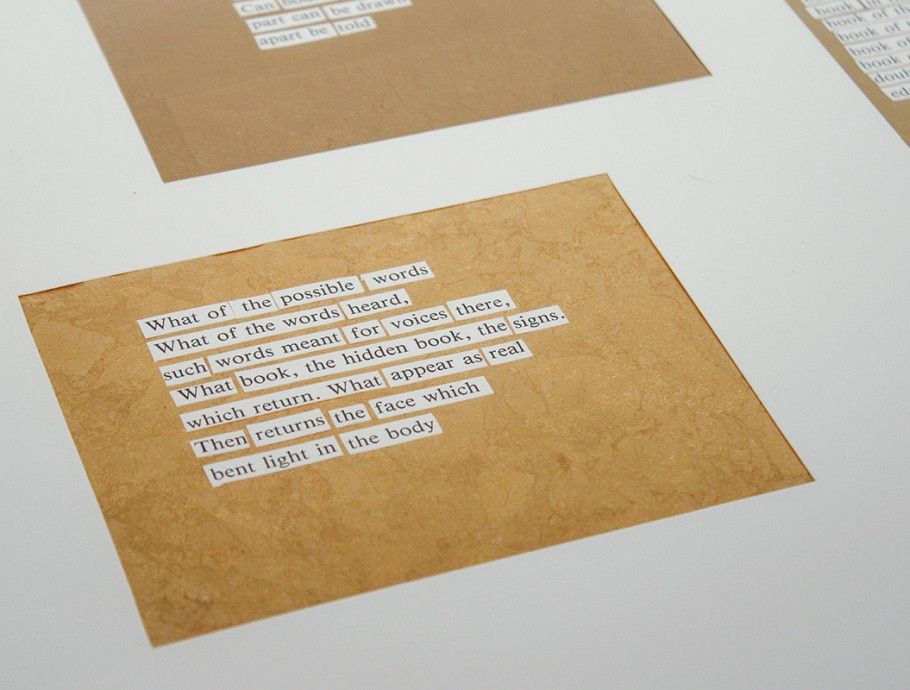 Can
part can be drawn
apart be told
book
book of the
book of
book of
book
edg
What of the possible words
What of the words heard,
such words meant for voices there,
What book, the hidden book, the signs.
which return. What appear as real
Then returns the face which
bent light in the body